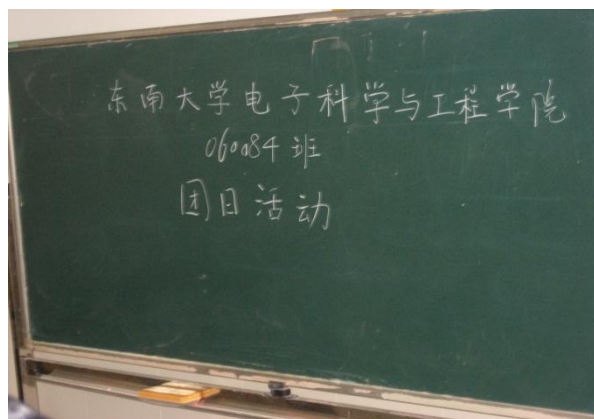 东南大学电子科学与工程学院
060084班
团日活动